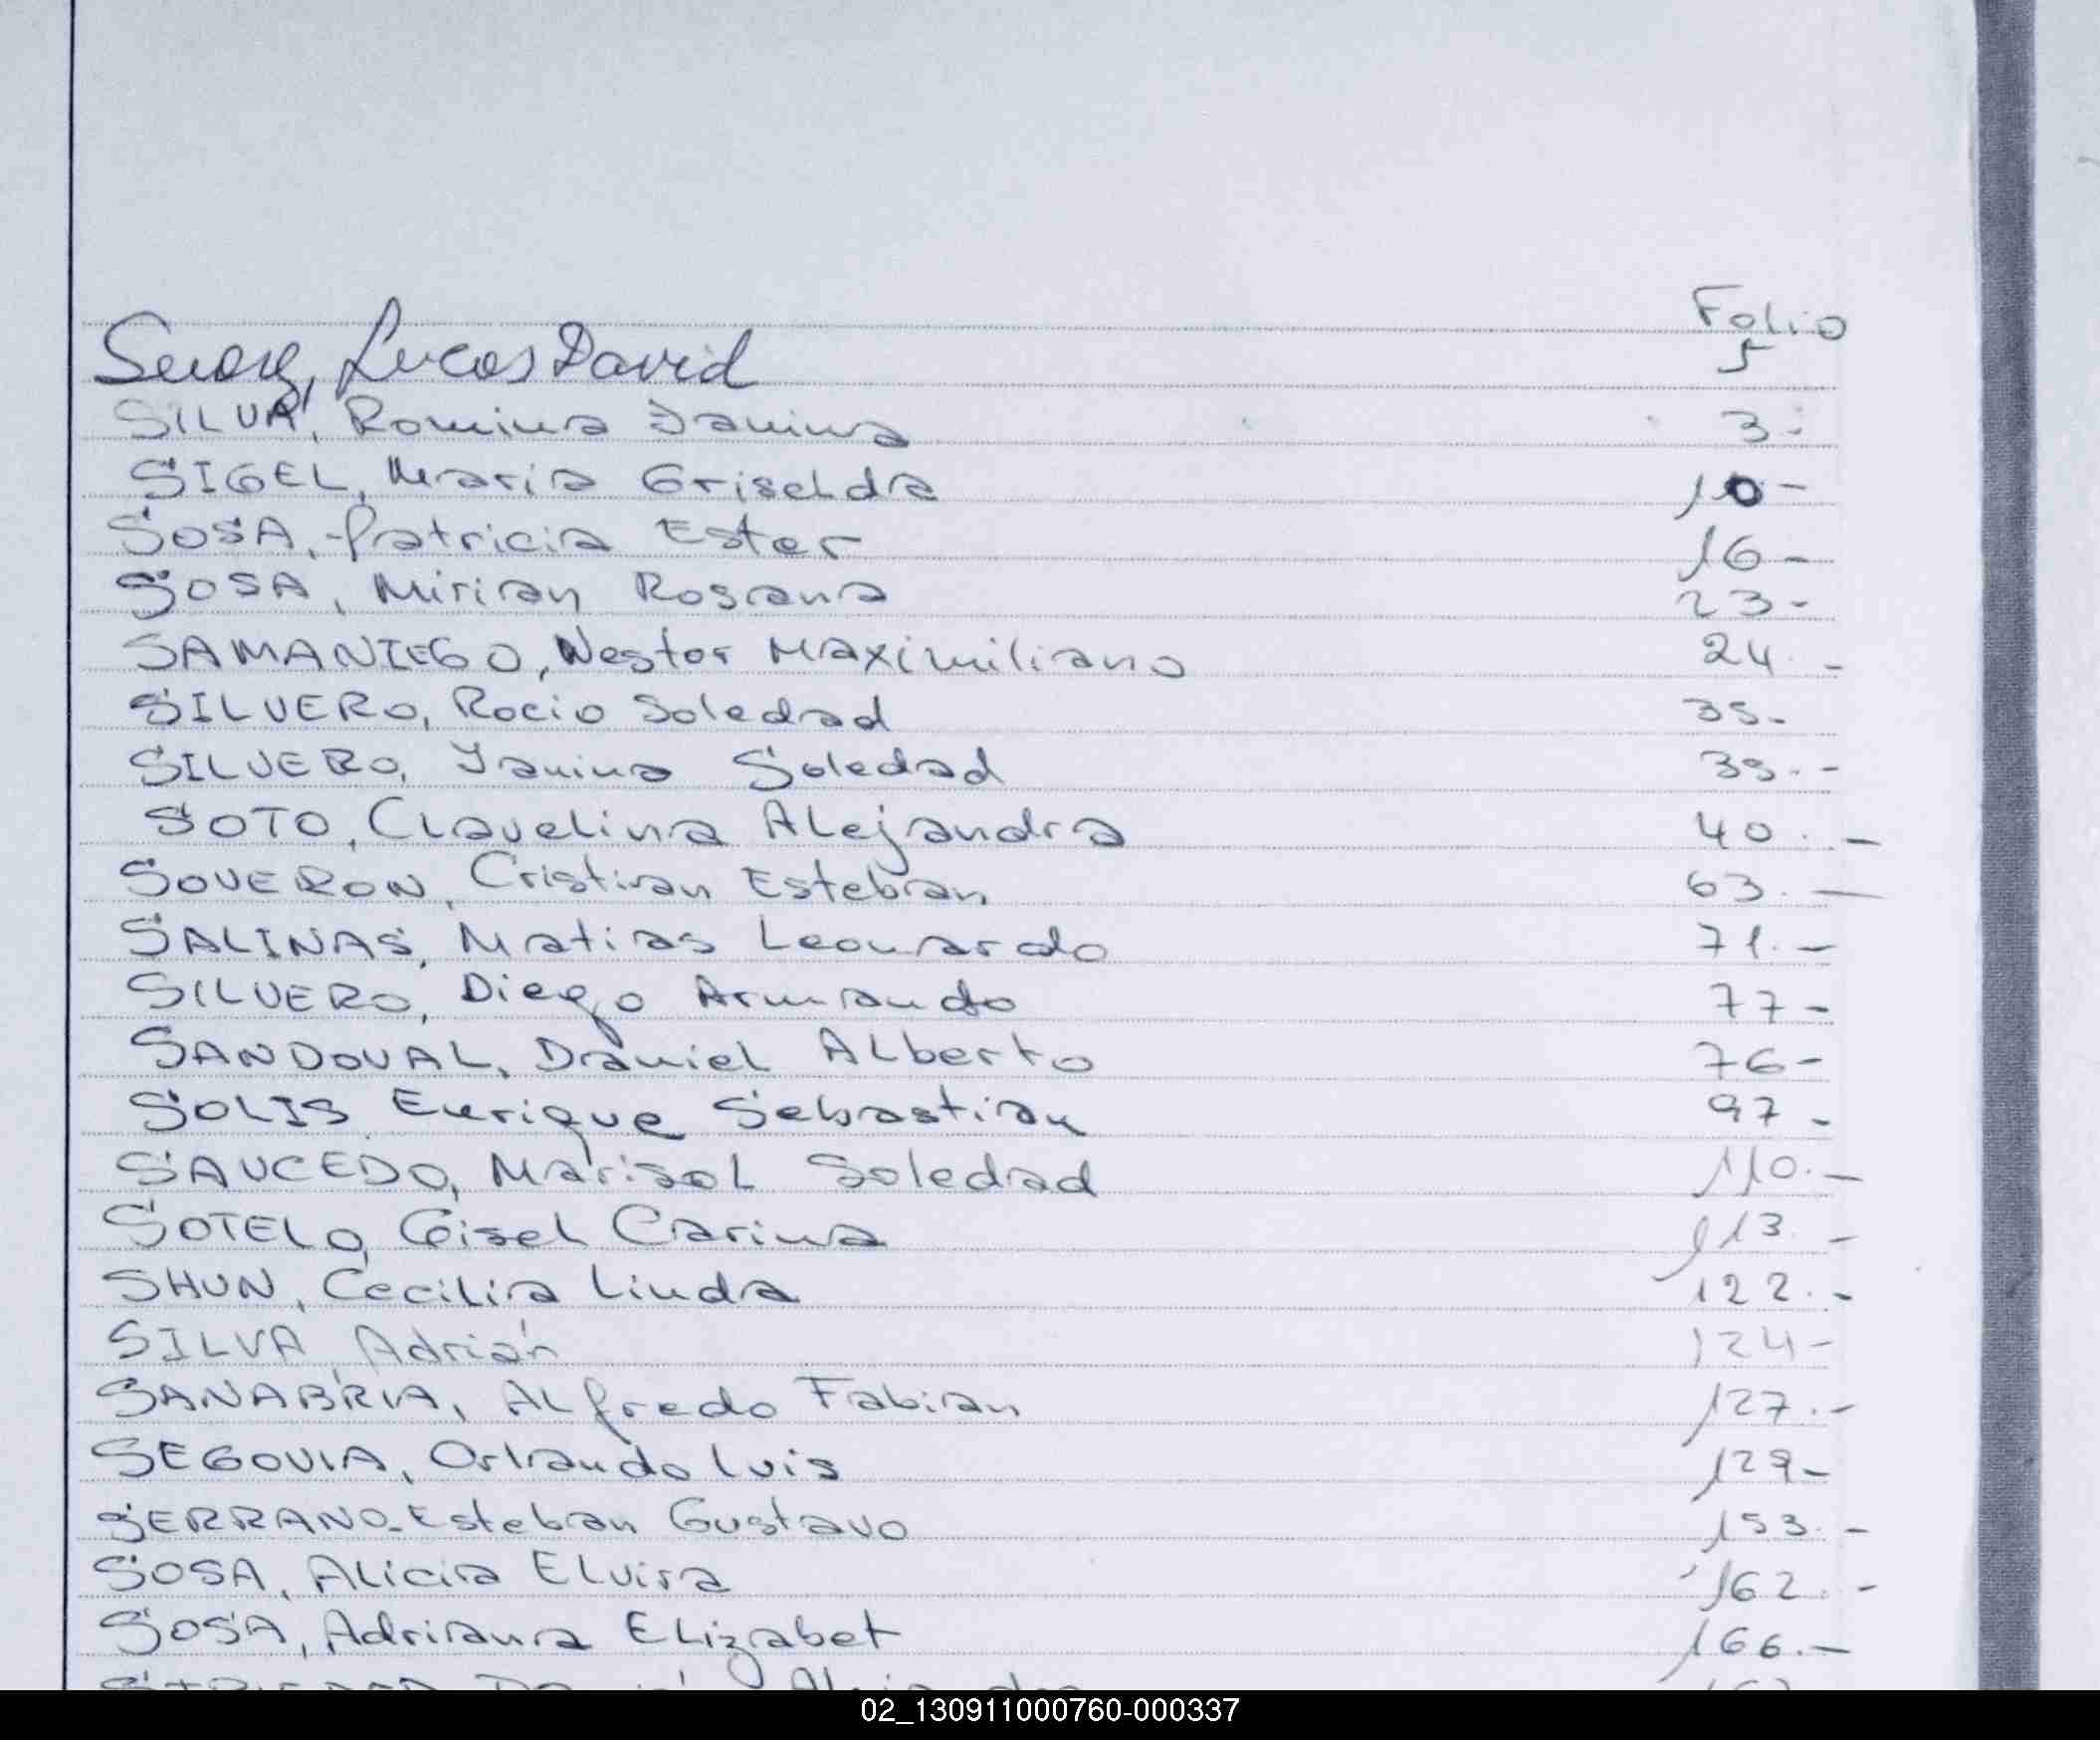 Folio
Lucas David 5
SILVA, Romina Janina 3.-
SIGEL, Maria Griselda 10-
SOSA, Patricia Ester 16-
SOSA, Mirian Rosana 23-
SAMANIEGO, Nestor Maximiliano 24.-
SILVERO, Rocio Soledad 35.-
SILVERO, Yanina Soledad 39.-
SOTO, Clavelina Alejandra 40.-
SOVERON, Cristian Esteban 63.-
SALINAS, Matias Leonardo 71.-
SILVERO, Diego Armando 77-
SANDOVAL, Daniel Alberto 76-
SOLIS Enrique Sebastian 97-
SAUCEDO, Marisol Soledad 110.-
SOTELO, Gisel Carina 113.-
SHUN, Cecilia Linda 122.-
SILVA, Adrián 124-
SANABRIA, Alfredo Fabian 127.-
SEGOVIA, Orlando Luis 129-
SERRANO-Esteban Gustavo 153.-
SOSA, Alicia Elvira 162.-
SOSA, Adriana Elizabet 166.-
02_130911000760-000337